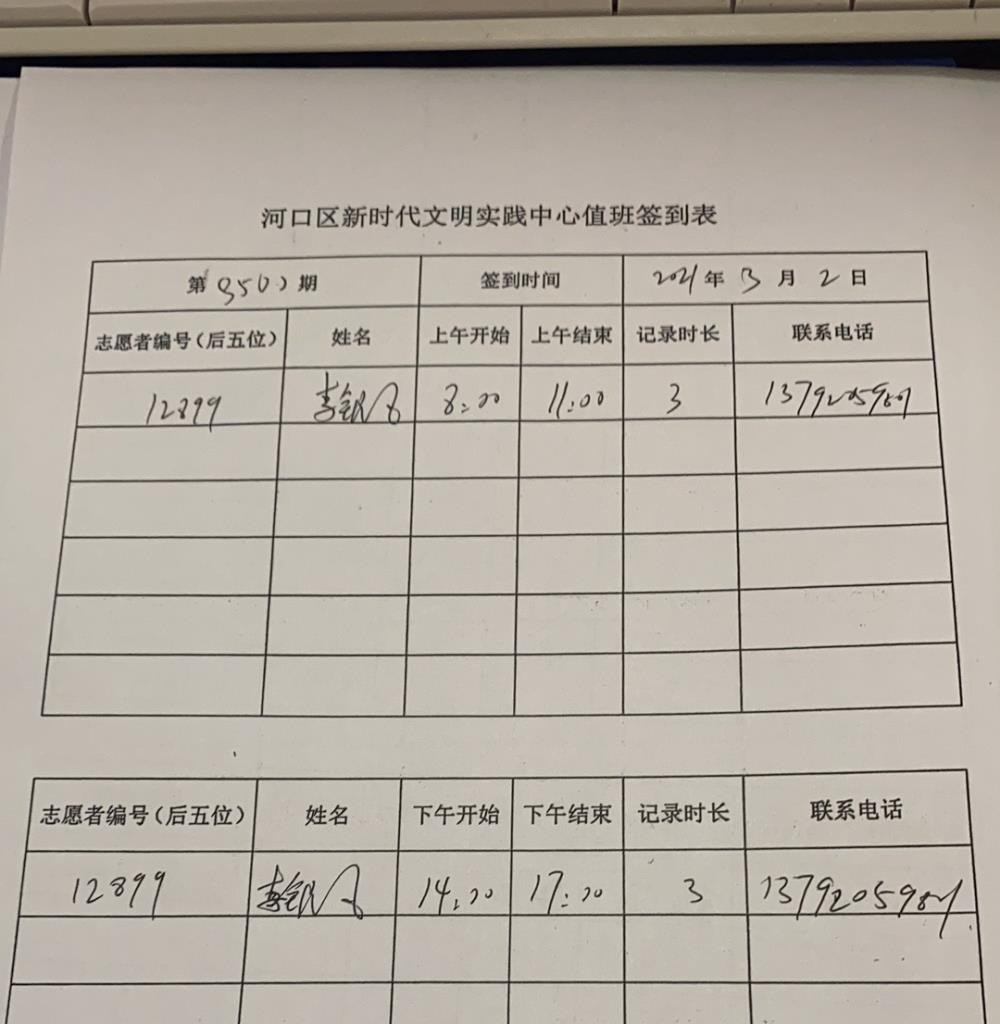 河口区新时代文明实践中心值班签到表
第 期 签到时间 2021年3月2日
志愿者编号(后五位) 姓名 上午开始 上午结束 记录时长 联系电话
12899 李银 8:00 11:00 3
志愿者编号(后五位) 姓名 下午开始 下午结束 记录时长 联系电话
12899 李银 14:00 17:00 3